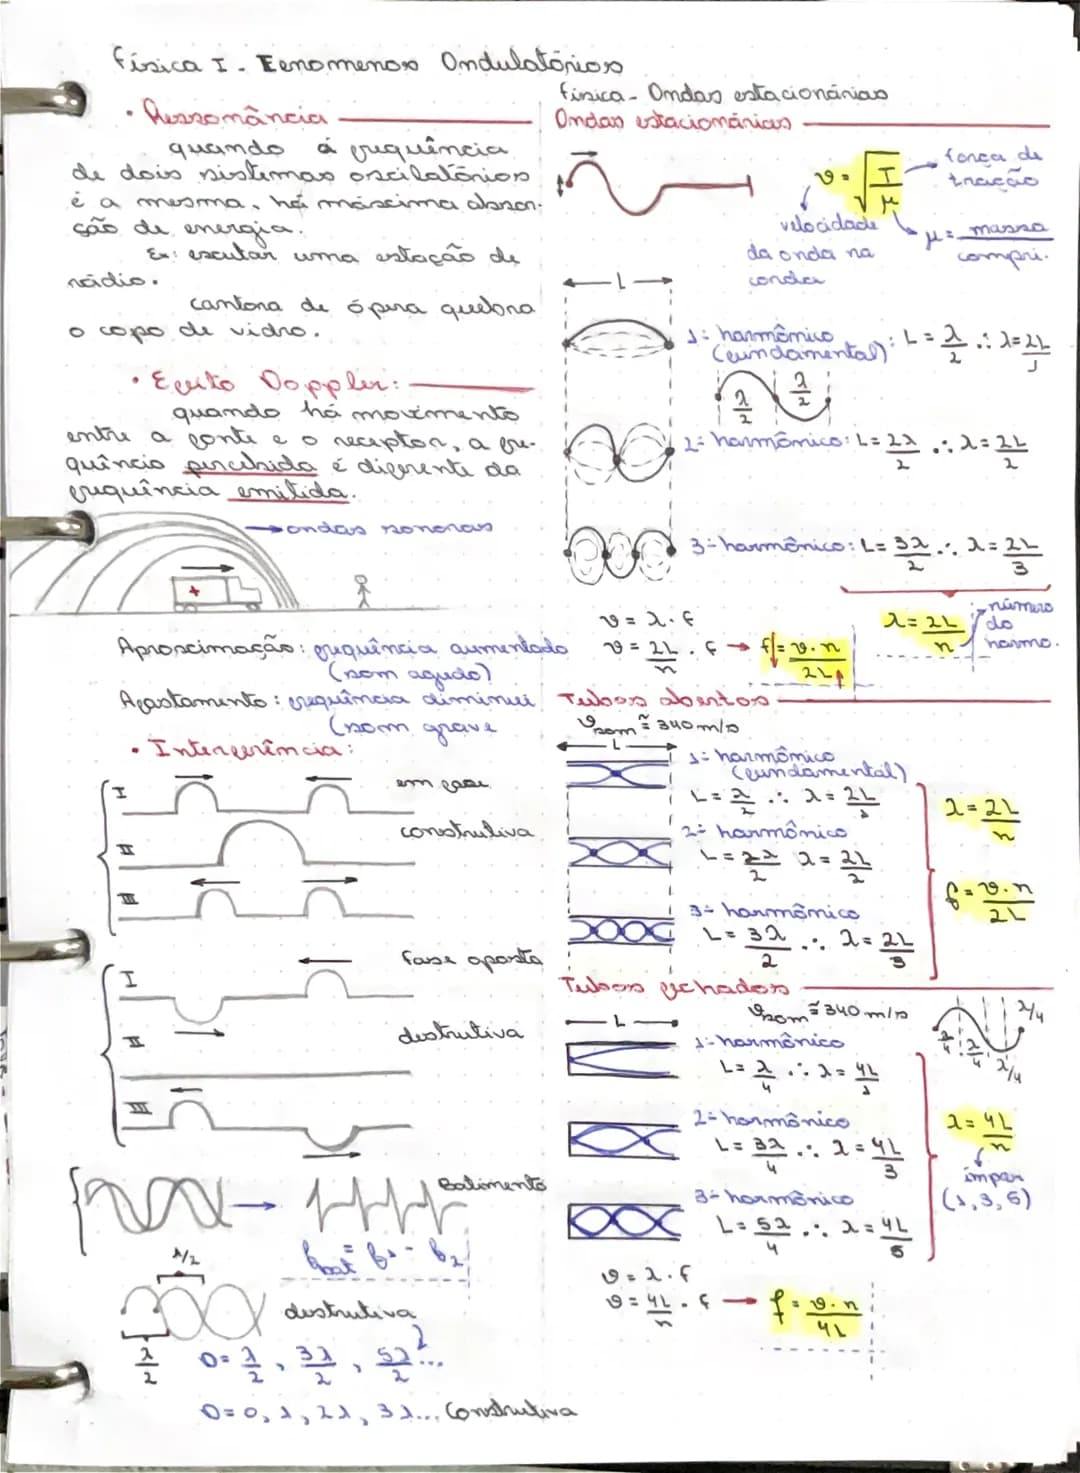 Física I - Fenomenos Ondulatórios
• Ressonância
quando a frequência
de dois sistemas oscilatórios
é a mesma, há máxima absor-
ção de energia.
Ex: escutar uma estação de
rádio.
cantora de ópera quebra
o copo de vidro.
• Efeito Doppler:
quando há movimento
entre a fonte e o receptor, a fre-
quência percebida é diferente da
frequência emitida.
→ ondas sonoras
Aproximação: frequência aumentada
(som agudo)
Afastamento: frequência diminui
(som grave
• Interferência:
I
em fase
II
construtiva
III
I
fase oposta
II
destrutiva
III
Batimento
fbat = f1 - f2
λ/2
destrutiva
λ/2
D = λ/2, 3λ/2, 5λ/2...
D = 0, λ, 2λ, 3λ... Construtiva
Física - Ondas estacionárias
Ondas estacionárias
v = √T/μ
força de
tração
velocidade
da onda na
corda
μ = massa/compri.
L
1º harmônico
(fundamental): L = λ/2 ∴ λ = 2L/1
λ/2 λ/2
2º harmônico: L = 2λ/2 ∴ λ = 2L/2
3º harmônico: L = 3λ/2 ∴ λ = 2L/3
v = λ . f
v = 2L/n . f → f = v.n/2L
λ = 2L/n
número
do
harmo.
Tubos abertos
vsom ≅ 340 m/s
L
1º harmônico
(fundamental)
L = λ/2 ∴ λ = 2L/1
2º harmônico
L = 2λ/2 λ = 2L/2
3º harmônico
L = 3λ/2 ∴ λ = 2L/3
λ = 2L/n
f = v.n/2L
Tubos fechados
vsom ≅ 340 m/s
L
λ/4
λ/4 λ/4 λ/4
1º harmônico
L = λ/4 ∴ λ = 4L/1
2º harmônico
L = 3λ/4 ∴ λ = 4L/3
3º harmônico
L = 5λ/4 ∴ λ = 4L/5
λ = 4L/n
ímpar
(1, 3, 5)
v = λ . f
v = 4L/n . f → f = v.n/4L